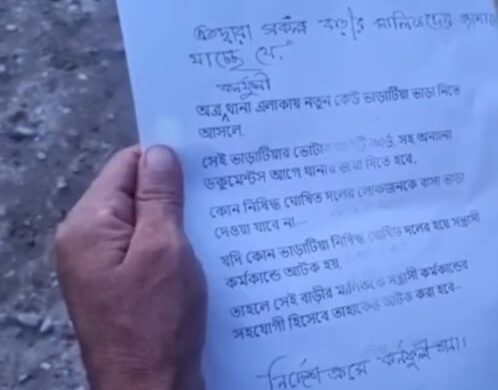 এতদ্বারা সকল বাড়ির মালিকদের জানানো
যাচ্ছে যে,
কর্ণফুলী
অত্র থানা এলাকায় নতুন কেউ ভাড়াটিয়া ভাড়া নিতে
আসলে,
সেই ভাড়াটিয়ার ভোটার কার্ড, সহ অন্যান্য
ডকুমেন্টস আগে থানায় জমা দিতে হবে,
কোন নিষিদ্ধ ঘোষিত দলের লোকজনকে বাসা ভাড়া
দেওয়া যাবে না...
যদি কোন ভাড়াটিয়া নিষিদ্ধ ঘোষিত দলের হয়ে সন্ত্রাসী
কর্মকান্ডে আটক হয়,
তাহলে সেই বাড়ীর মালিককে সন্ত্রাসী কর্মকান্ডের
সহযোগী হিসেবে তাহাকেও আটক করা হবে--
নির্দেশ ক্রমে কর্ণফুলী থানা।